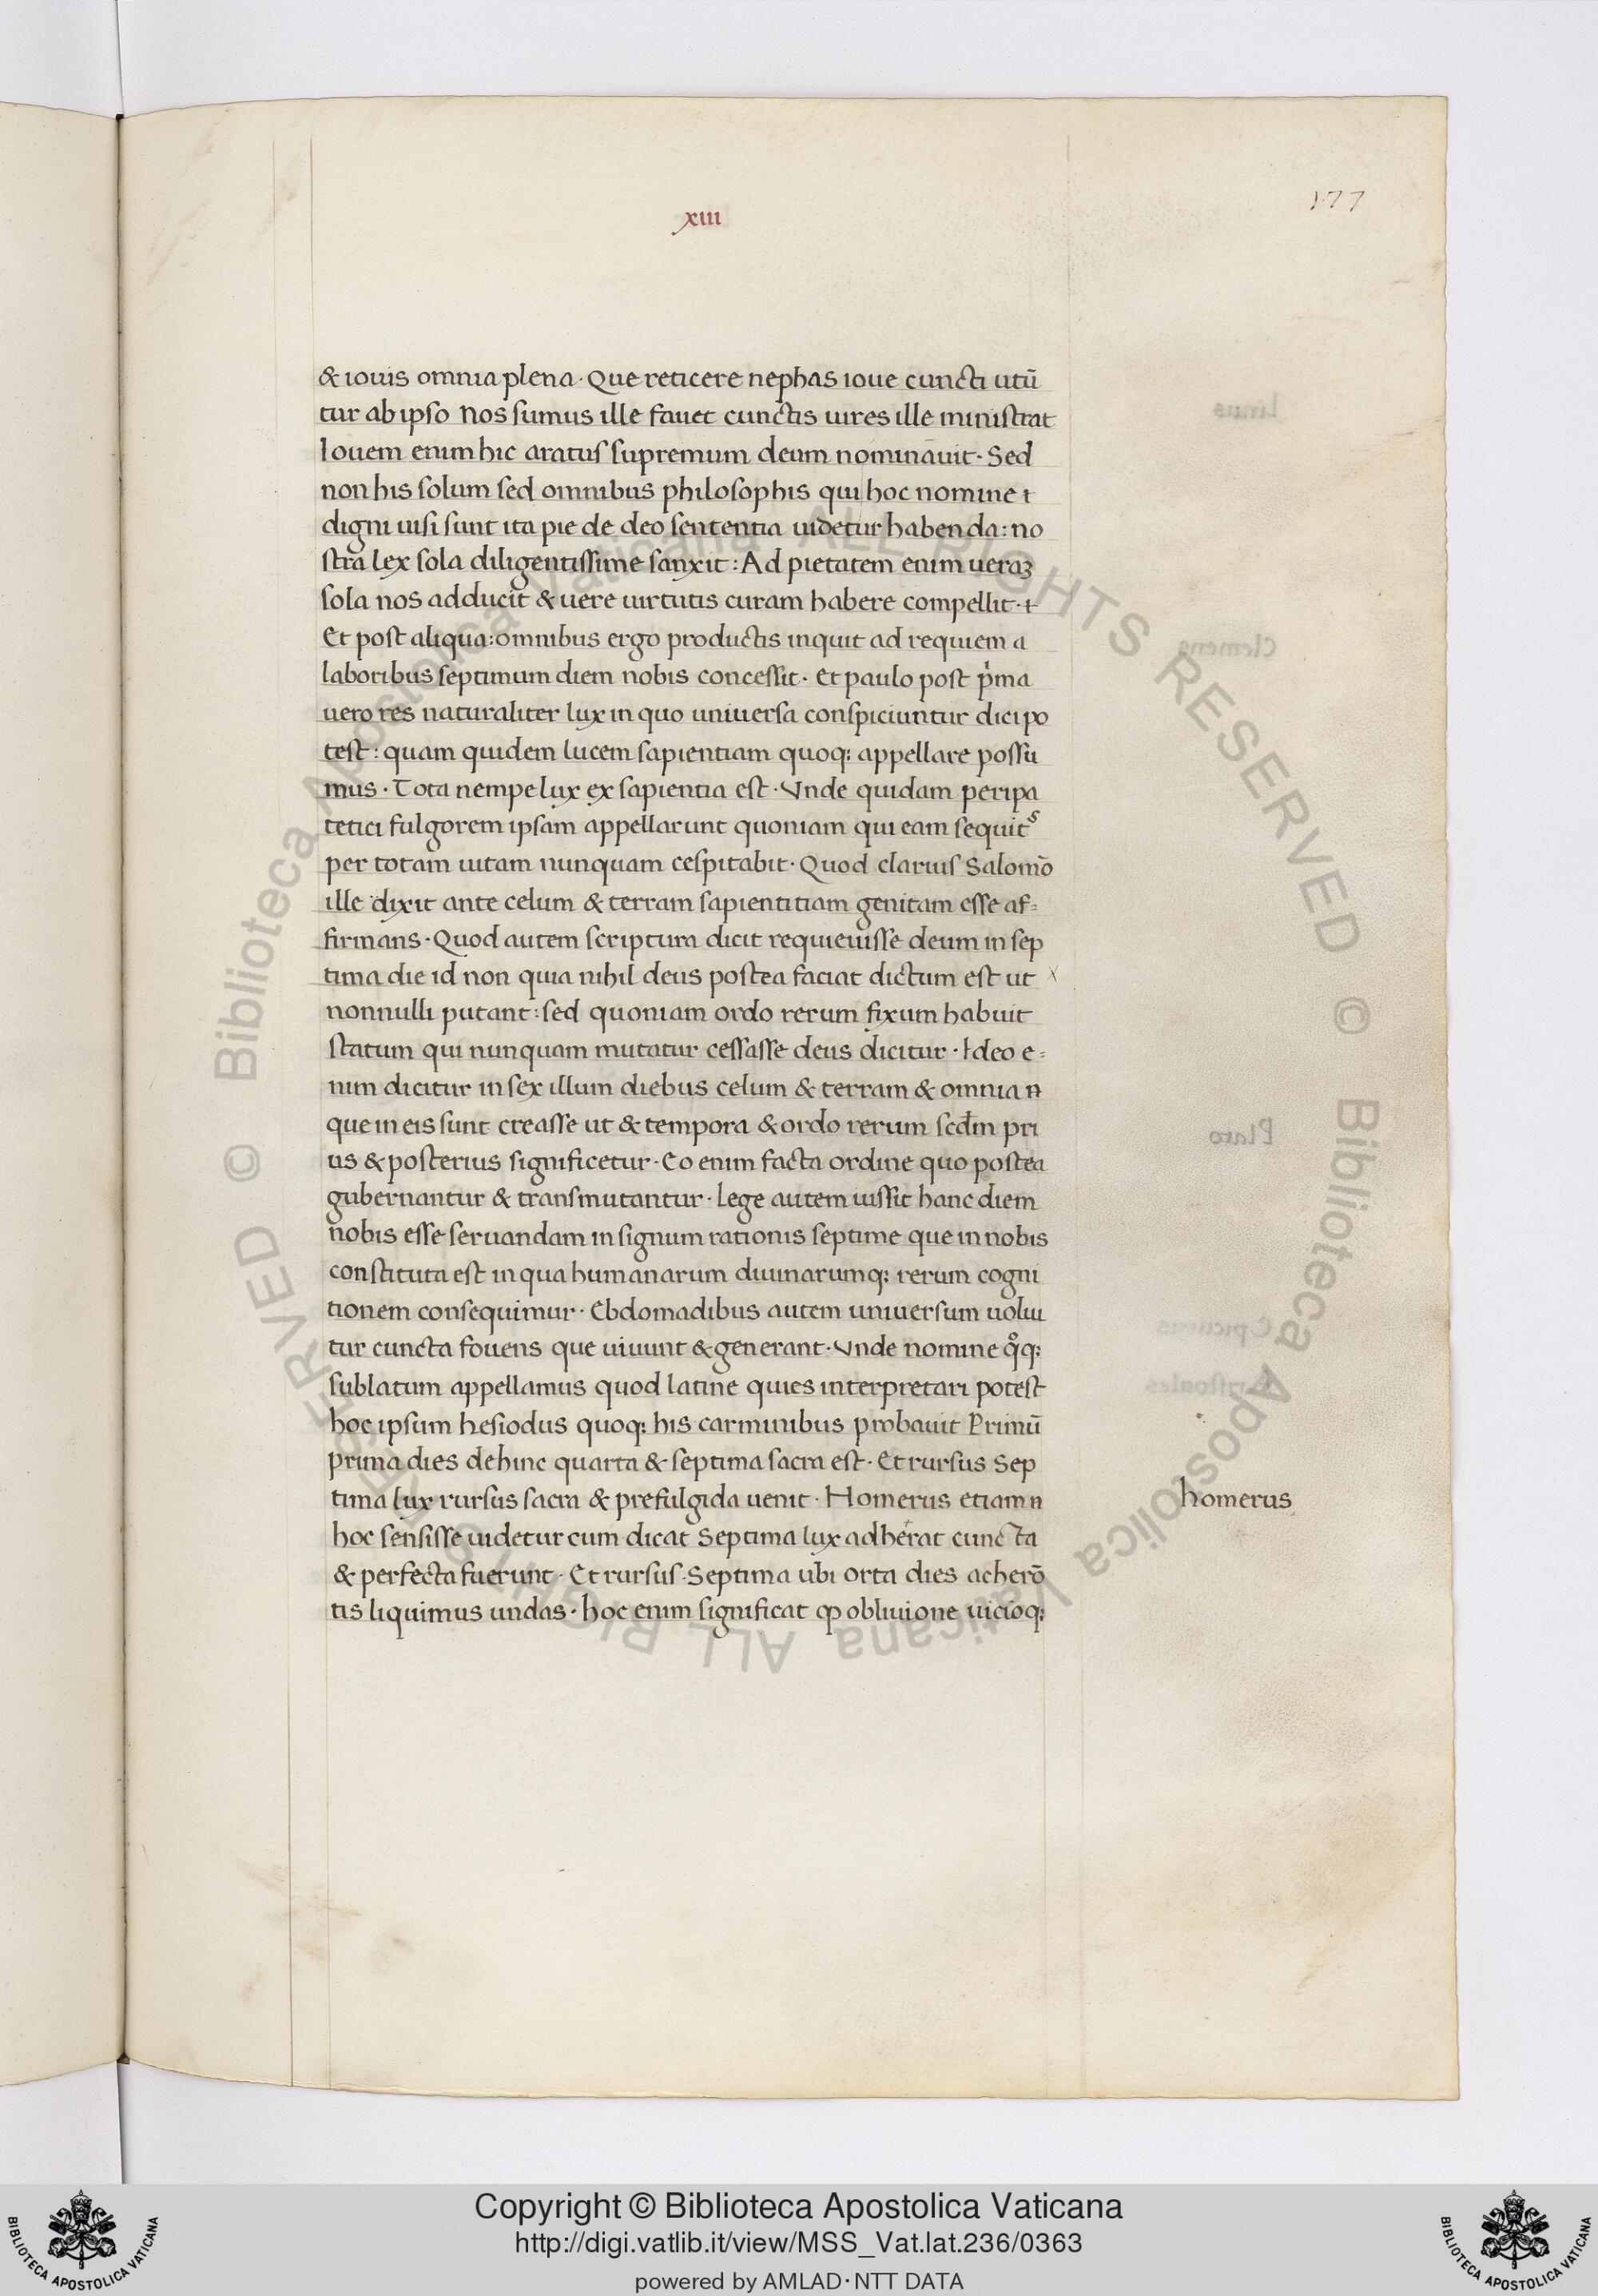 177
xiii
& iouis omnia plena · Que reticere nephas ioue cuncti utũ
tur ab ipso Nos sumus ille fauet cunctis uires ille ministrat
Iouem enim hic aratus supremum deum nominauit · Sed
non his solum sed omnibus philosophis qui hoc nomine ɫ
digni uisi sunt ita pie de deo sententia uidetur habenda : no
stra lex sola diligentissime sanxit : Ad pietatem enim ueraꝫ
sola nos adducit & uere uirtutis curam habere compellit · ɫ
Et post aliqua : omnibus ergo productis inquit ad requiem a
laboribus septimum diem nobis concessit · Et paulo post pͥma
uero res naturaliter lux in quo uniuersa conspiciuntur dici po
test : quam quidem lucem sapientiam quoqꝫ appellare possu
mus · Tota nempe lux ex sapientia est · Vnde quidam peripa
tetici fulgorem ipsam appellarunt quoniam qui eam sequit᷒
per totam uitam nunquam cespitabit · Quod clarius Salomõ
ille dixit ante celum & terram sapientitiam genitam esse af=
firmans · Quod autem scriptura dicit requieuisse deum in sep
tima die id non quia nihil deus postea faciat dictum est ut x
nonnulli putant : sed quoniam ordo rerum fixum habuit
statum qui nunquam mutatur cessasse deus dicitur · Ideo e=
nim dicitur in sex illum diebus celum & terram & omnia n
que in eis sunt creasse ut & tempora & ordo rerum scd̃m pri
us & posterius significetur · Eo enim facta ordine quo postea
gubernantur & transmutantur · Lege autem iussit hanc diem
nobis esse seruandam in signum rationis septime que in nobis
constituta est in qua humanarum diuinarumqꝫ rerum cogni
tionem consequimur · Ebdomadibus autem uniuersum uolui
tur cuncta fouens que uiuunt & generant · Vnde nomine qͦqꝫ
sublatum appellamus quod latine quies interpretari potest
hoc ipsum hesiodus quoqꝫ his carminibus probauit Primũ
prima dies dehinc quarta & septima sacra est · Et rursus Sep
tima lux rursus sacra & prefulgida uenit · Homerus etiam n
homerus
hoc sensisse uidetur cum dicat Septima lux adherat cuncta
& perfecta fuerunt · Et rursus · Septima ubi orta dies acherõ
tis liquimus undas · hoc enim significat ꝙ obliuione uicioqꝫ
Copyright © Biblioteca Apostolica Vaticana
http://digi.vatlib.it/view/MSS_Vat.lat.236/0363
powered by AMLAD·NTT DATA
BIBLIOTECA APOSTOLICA VATICANA
BIBLIOTECA APOSTOLICA VATICANA
© Biblioteca Apostolica Vaticana ALL RIGHTS RESERVED © Biblioteca Apostolica Vaticana ALL RIGHTS RESERVED